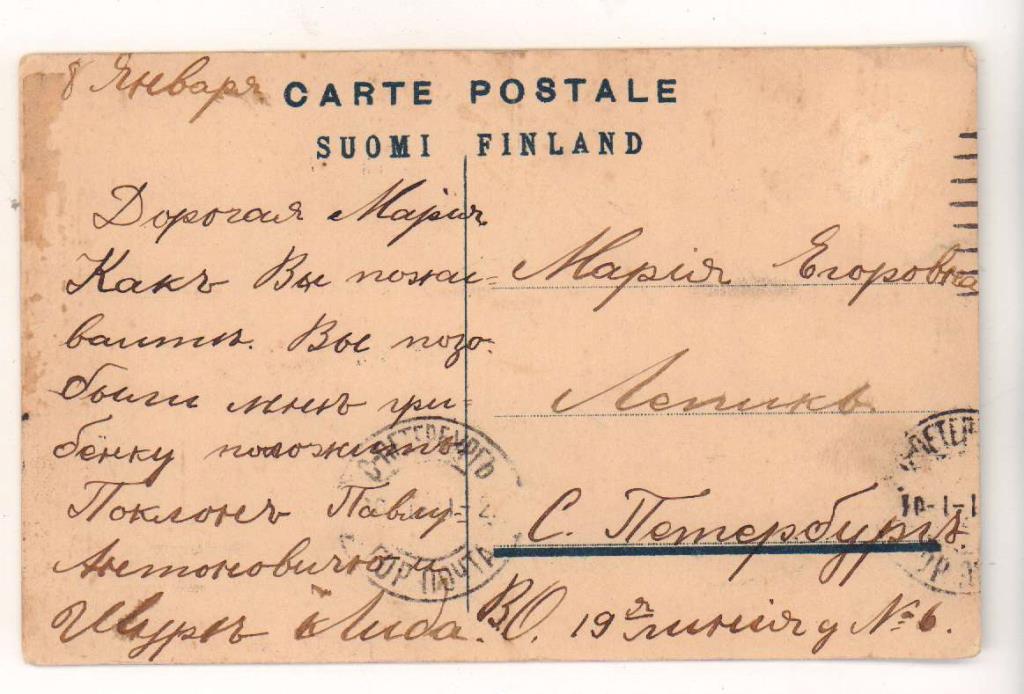 8 Января
CARTE POSTALE
SUOMI FINLAND
Дорогая Мария.
Какъ Вы пожаи-
ваити. Вы позо-
были мнѣ гри-
бёнку положить
Поклонъ Павлу
Антоновичю и
Шурѣ Лида.
Марія Егоровна
Лепикъ.
С. Петербургъ.
В.О. 19ая линія д № 6.
С-ПЕТЕРБУРГЪ
ГОР ПОЧТА
ПЕТЕР
10-1-1